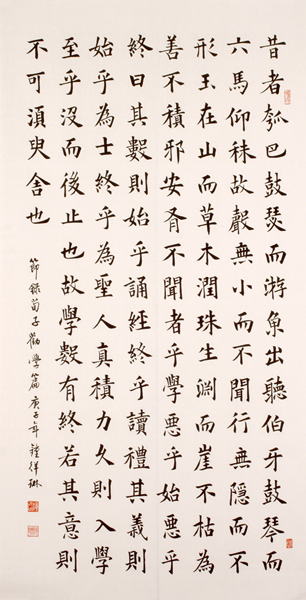 昔者瓠巴鼓瑟而游魚出聽伯牙鼓琴而
六馬仰秣故聲無小而不聞行無隱而不
形玉在山而草木潤珠生渊而崖不枯為
善不積邪安有不聞者乎學惡乎始惡乎
終曰其數則始乎誦經終乎讀禮其義則
始乎為士終乎為聖人真積力久則入學
至乎沒而後止也故學數有終若其意則
不可須臾舍也
節錄荀子勸學篇庚子年